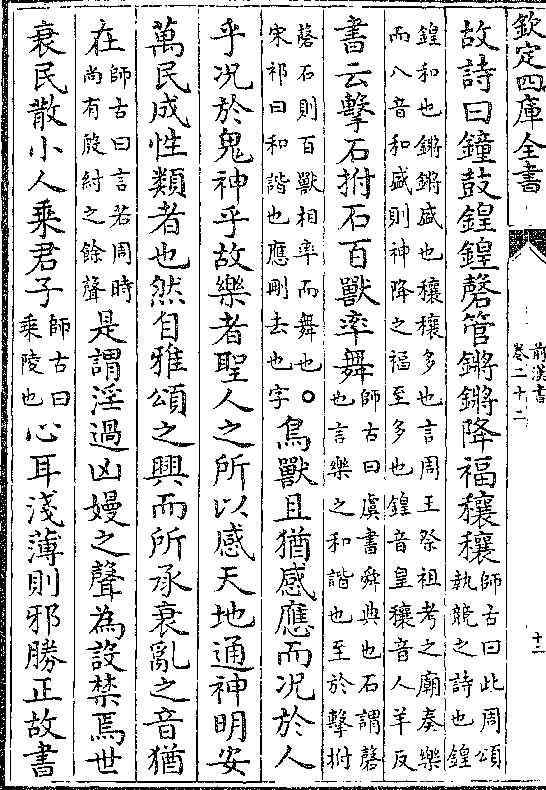 欽定四庫全書
前漢書
卷二十二
十二
故詩曰鐘鼓鍠鍠磬管鏘鏘降福穰穰師古曰此周頌執競之詩也鍠
鍠和也鏘鏘盛也穰穰多也言周王祭祖考之廟奏樂而八音和盛則神降之福至多也鍠音皇穰音人羊反
書云擊石拊石百獸率舞師古曰虞書舜典也石謂磬也言樂之和諧也至於擊拊
磬石則百獸相率而舞也。宋祁曰和諧也應刪去也字鳥獸且猶感應而况於人
乎况於鬼神乎故樂者聖人之所以感天地通神明安
萬民成性類者也然自雅頌之興而所承衰亂之音猶
在師古曰言若周時尚有殷紂之餘聲是謂淫過凶嫚之聲為設禁焉世
衰民散小人乘君子師古曰乘陵也心耳淺薄則邪勝正故書